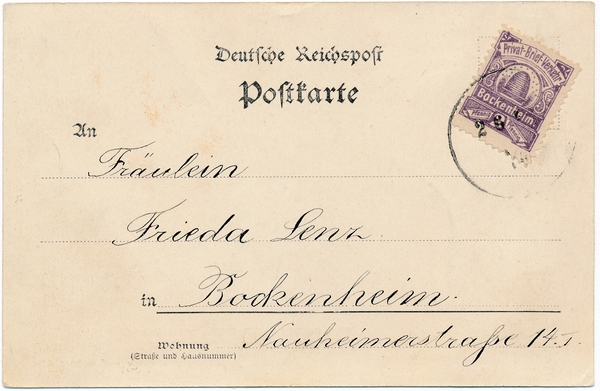 Deutsche Reichspost
Postkarte
Privat-Brief-Verkehr
Bockenheim.
2 3
An
Fräulein
Frieda Lenz.
in Bockenheim.
Wohnung
(Straße und Hausnummer)
Nauheimerstraße 14 I.